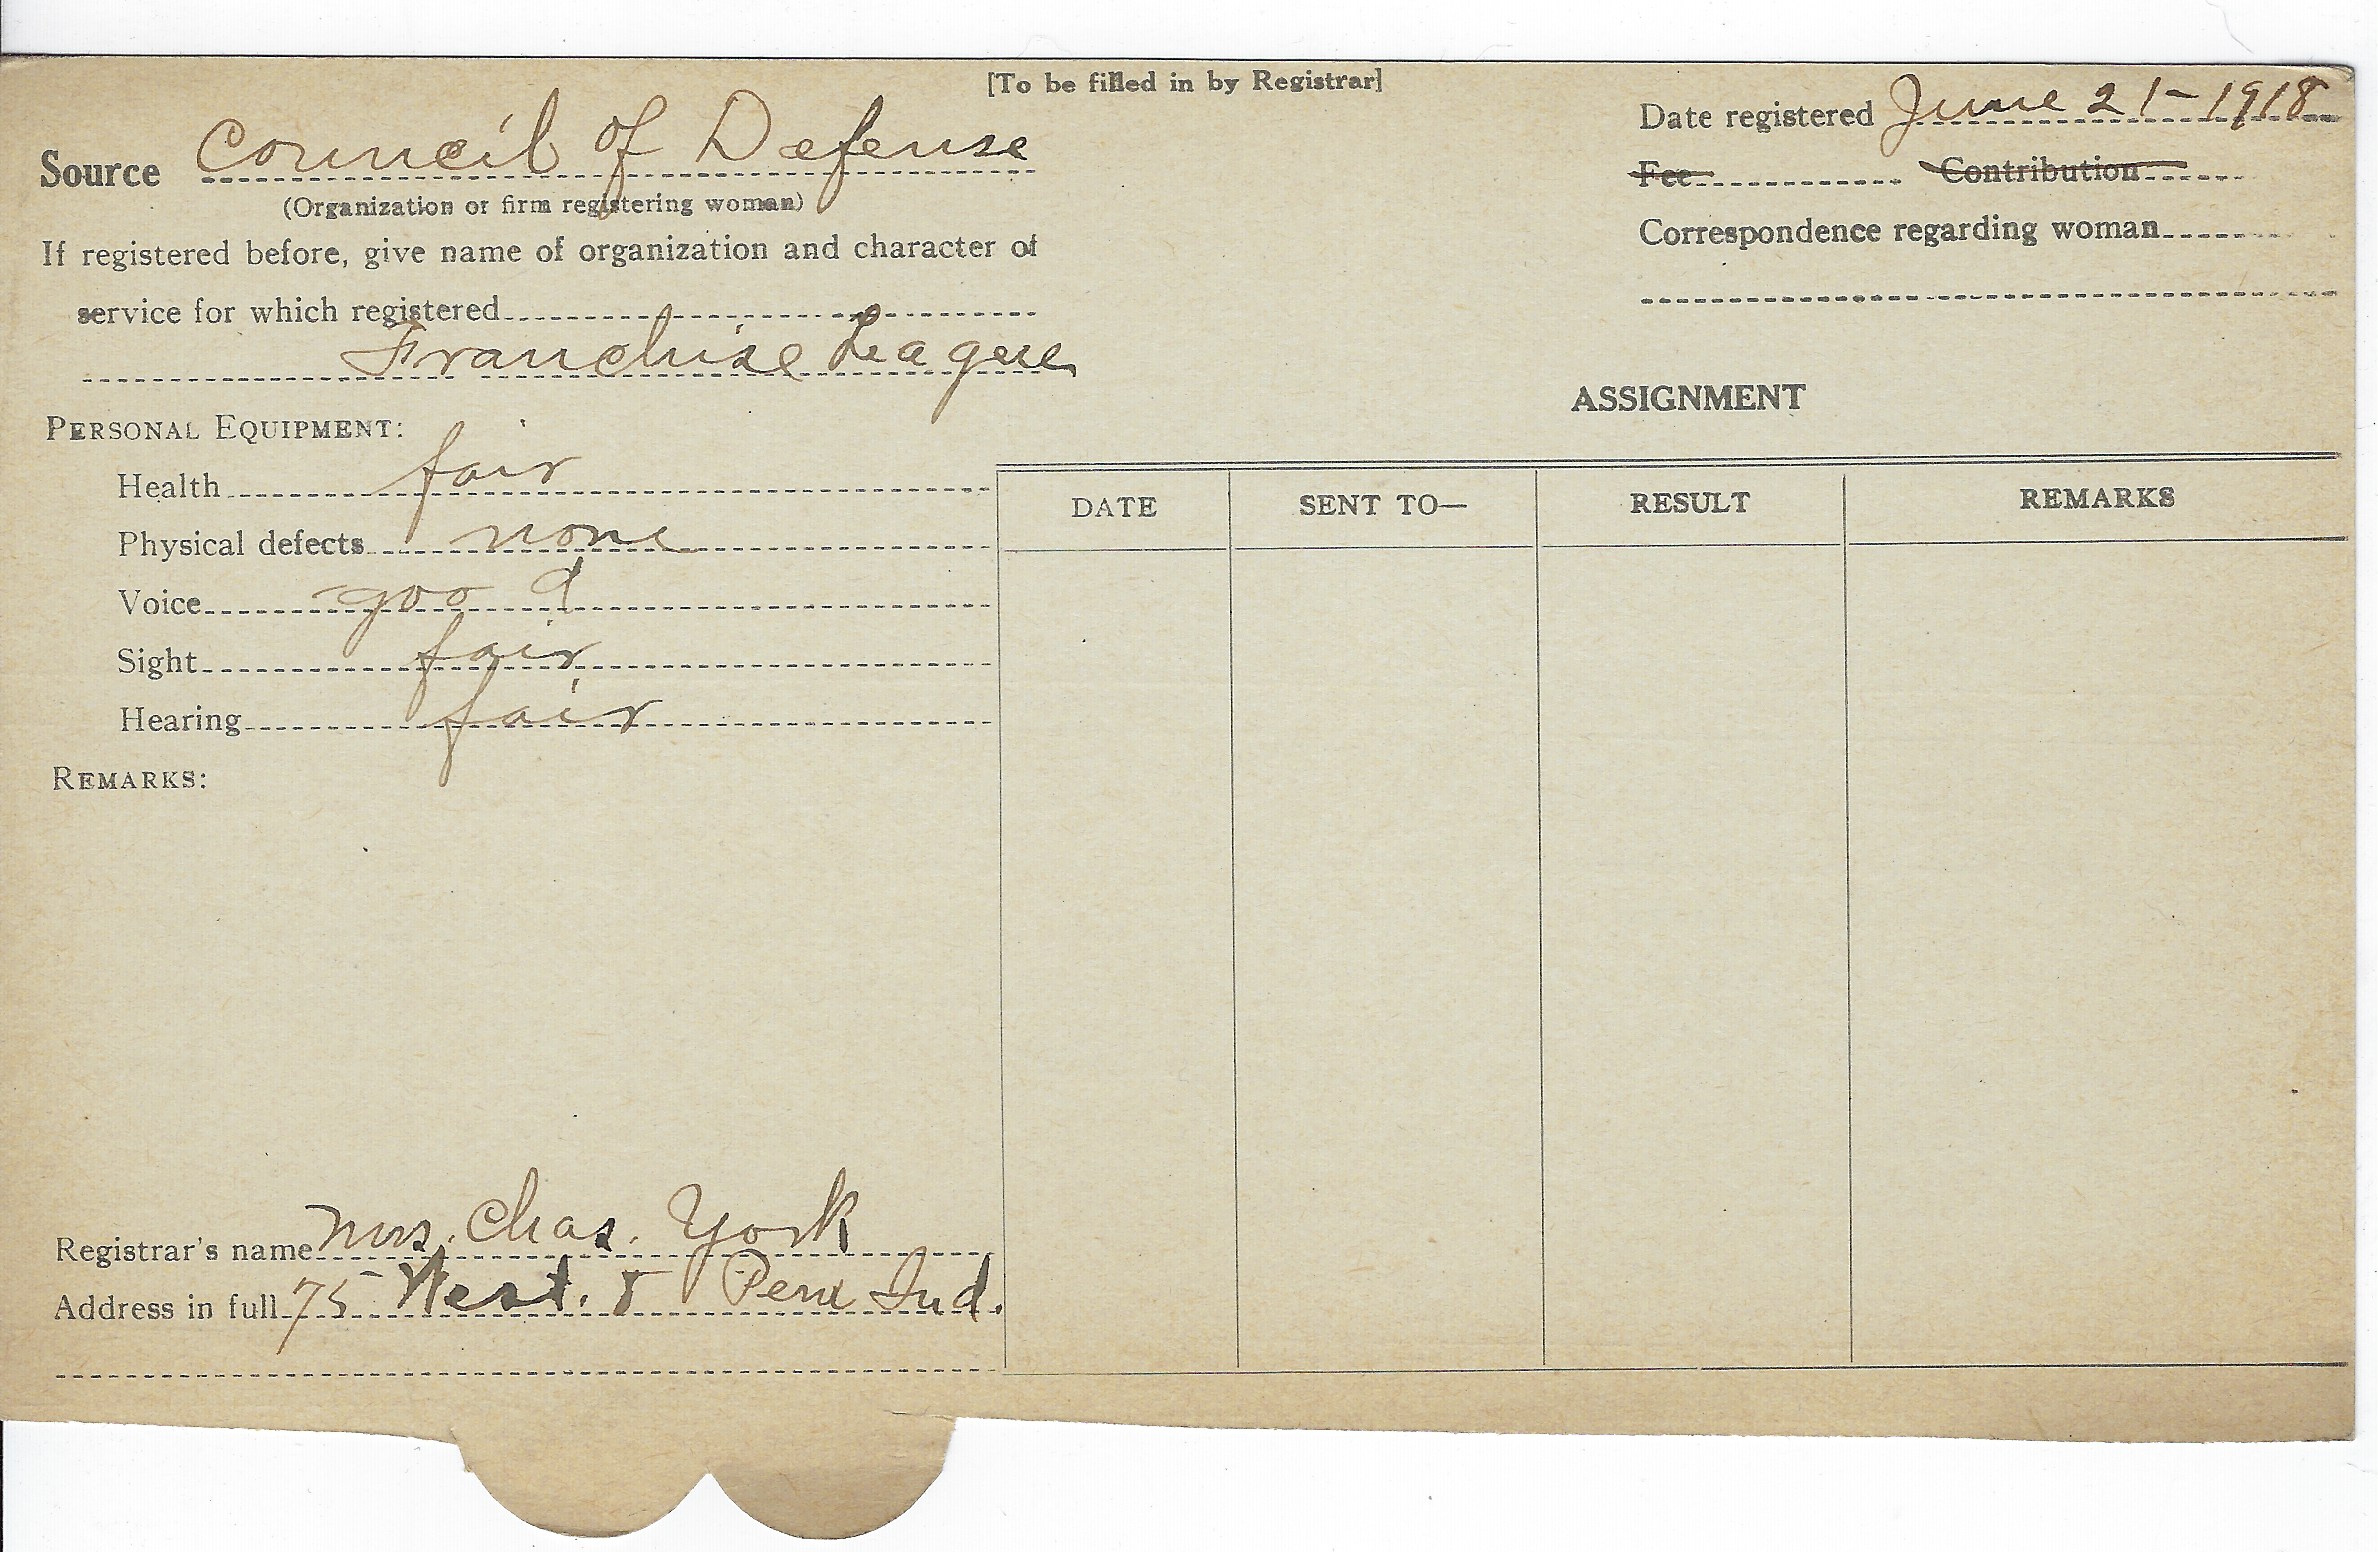 [To be filled in by Registrar]
Date registered June 21-1918
Source Council of Defense
(Organization or firm registering woman)
Fee Contribution
If registered before, give name of organization and character of
Correspondence regarding woman
service for which registered
Franchise League
ASSIGNMENT
PERSONAL EQUIPMENT:
Health fair
DATE SENT TO— RESULT REMARKS
Physical defects none
Voice good
Sight fair
Hearing fair
REMARKS:
Registrar's name Mrs. Chas. York
Address in full 75 West. 5 Peru Ind.